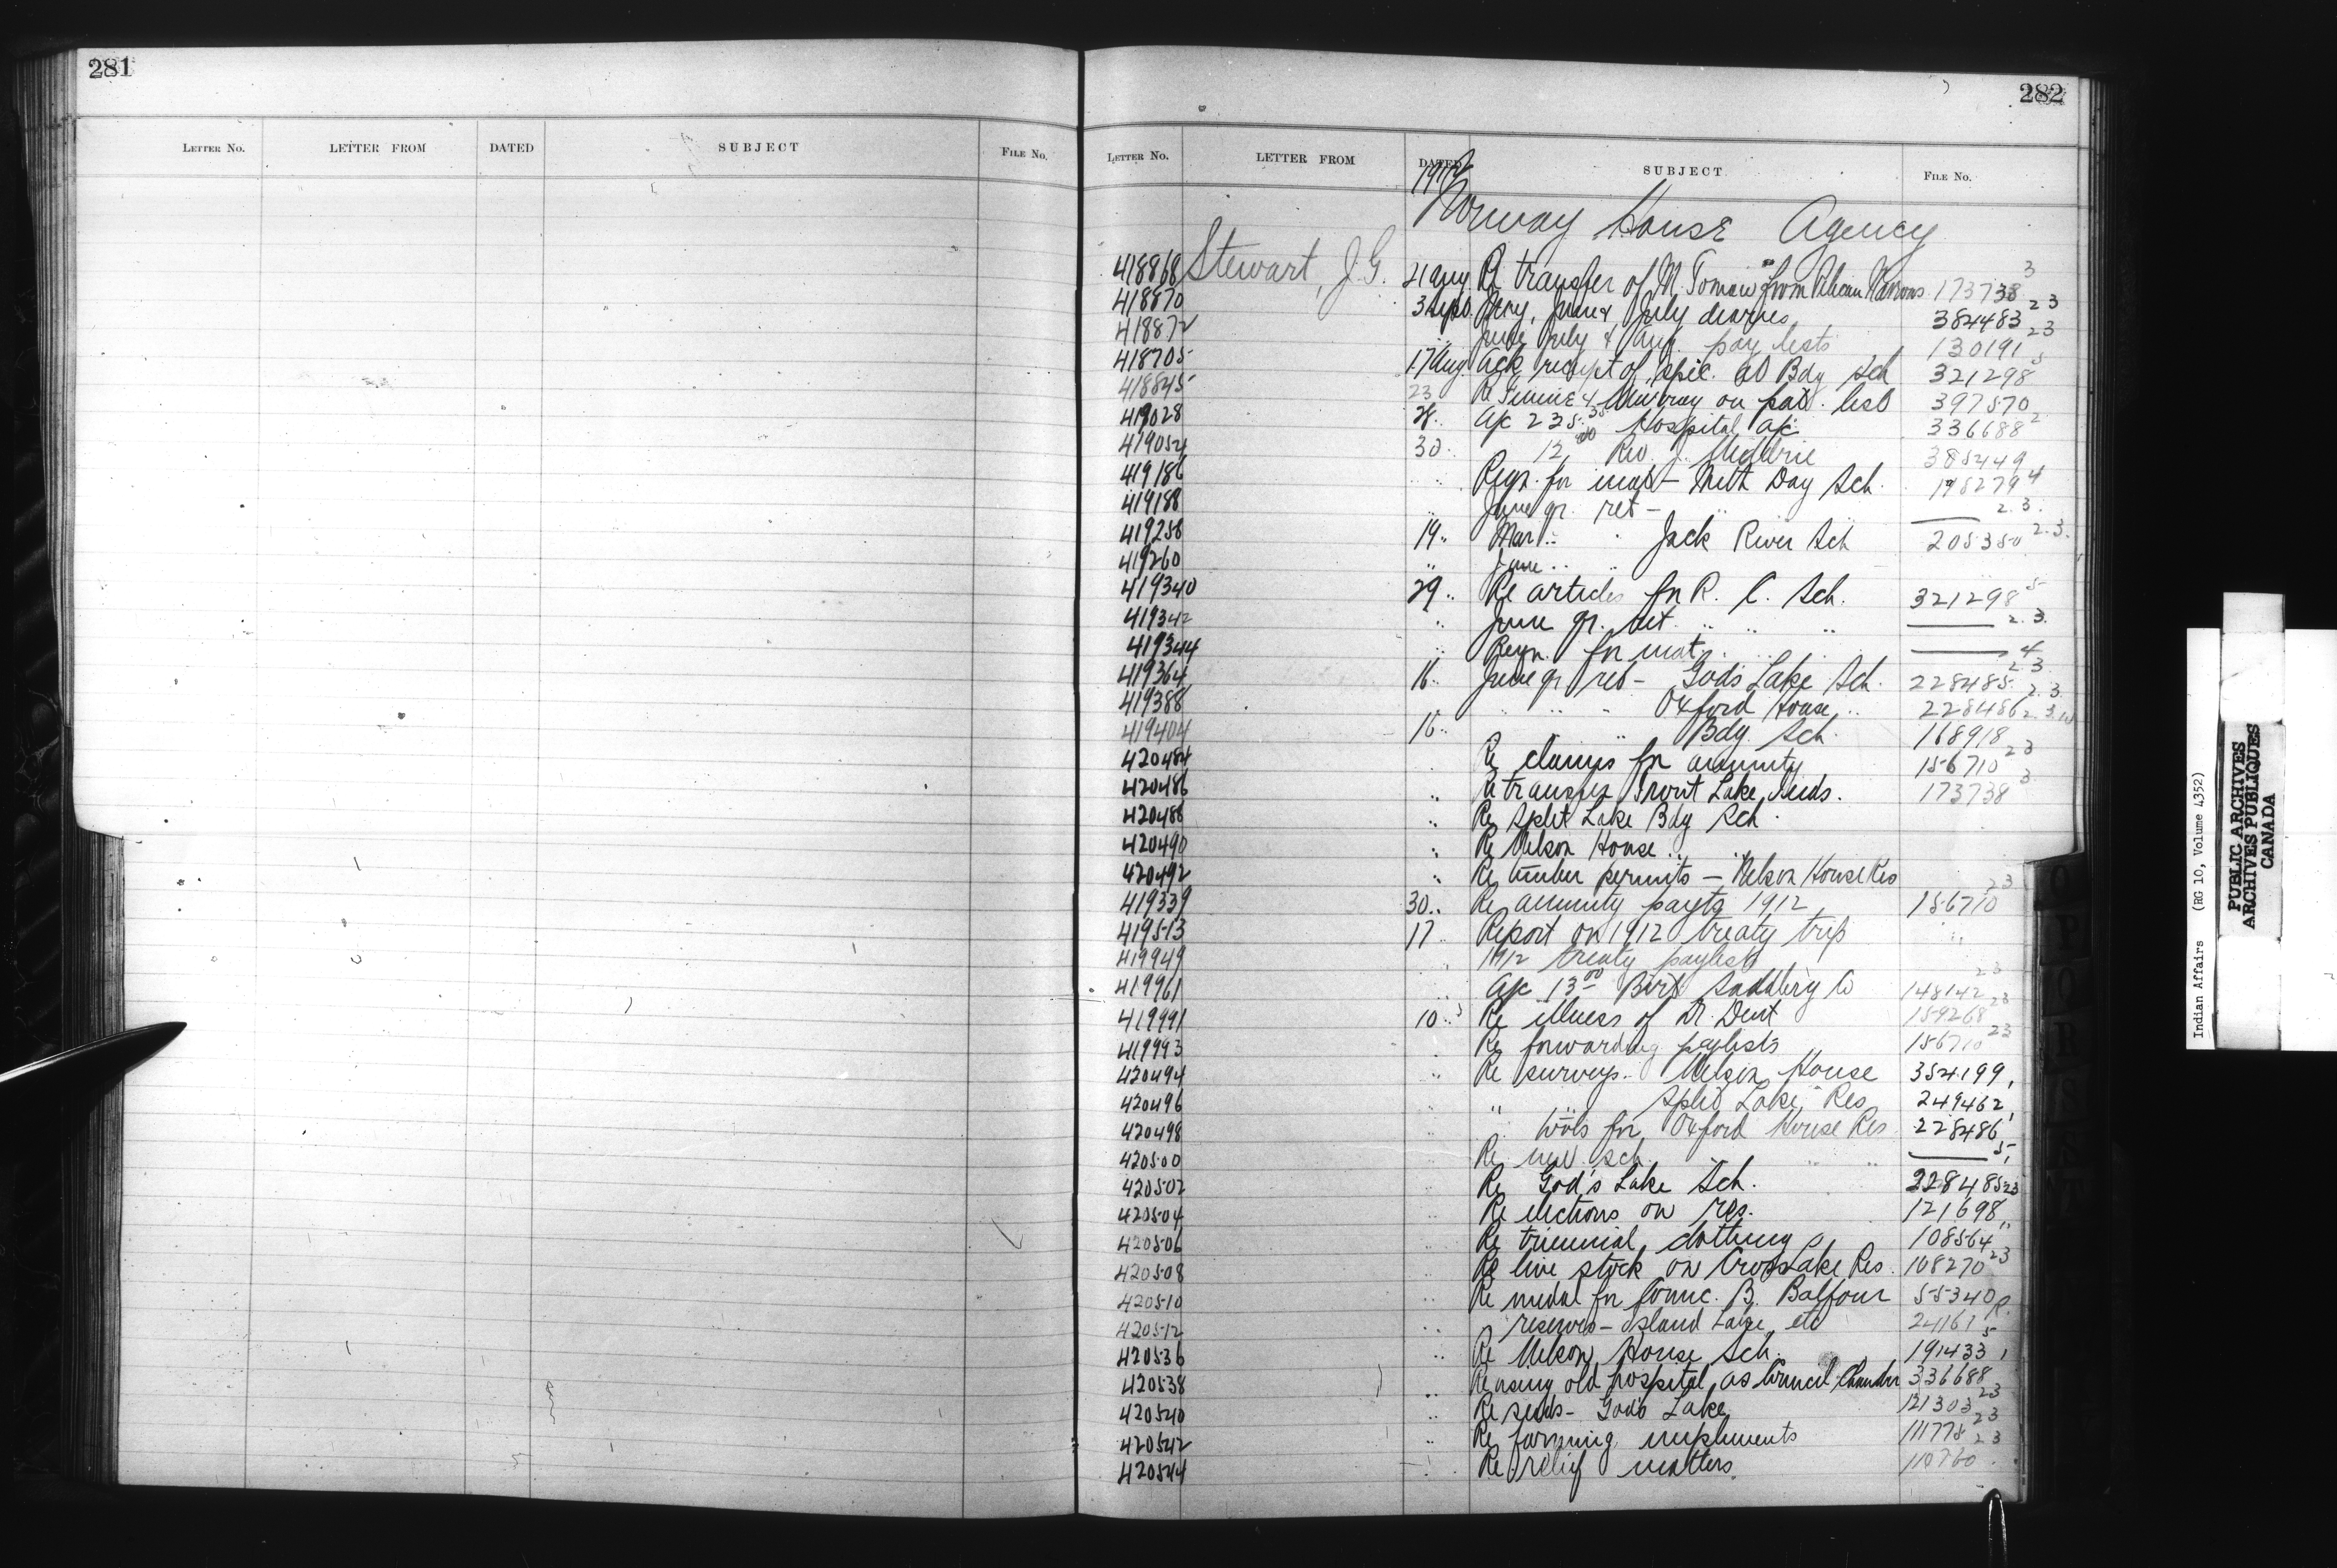 281
LETTER No. LETTER FROM DATED SUBJECT FILE No.
282
LETTER No. LETTER FROM DATED SUBJECT FILE No.
1912
Norway House Agency
418868 Stewart, J.G. 21 Aug Re transfer of M. from Pelican Narrows 173738 3
418870 3 Sept. June & July diaries 384483 23
418872 June July & Aug. pay lists 130191 23
418705 17 Aug Ack receipt of spec. Bdg Sch 321298 5
418845 23 Re & Murray on pay list 397570
419028 28 A/c 235.35 Hospital a/c 336688 2
419054 30 12.00 Rev. J. 385449
419186 Reqn. for mat - Meth Day Sch. 198279 4
419188 June qr. ret - 2.3.
419258 19 Mar. Jack River Sch 205350 2.3.
419260 June
419340 29 Re articles for R. C. Sch. 321298 5
419342 June qr. ret. 2.3.
419344 Reqn. for mat. 4
419364 16 June qr ret - Gods Lake Sch. 228485 2.3
419388 Oxford House 228486 2.3
419404 16 Bdg. Sch. 168918 2.3.10
420484 Re claims for annuity 156710 23
420486 Re transfer Trout Lake Inds. 173738 3
420488 Re Split Lake Bdg Sch.
420490 Re Nelson House
420492 Re timber permits - Nelson House Res
419339 30 Re annuity payts 1912 156710 23
419513 17 Report on 1912 treaty trip
419949 1912 treaty paylists
419961 A/c 13.00 Birt Saddlery Co 148142 23
419991 10 Re illness of Dr. Dent 159268 23
419993 Re forwarding paylists 156710 23
420494 Re surveys. Nelson House 354199,
420496 " " Split Lake Res 249462,
420498 " tools for Oxford House Res 228486,
420500 Re new sch. 5
420502 Re God's Lake Sch. 228485 23
420504 Re elections on res. 121698
420506 Re triennial clothing 108564
420508 Re live stock on Cross Lake Res. 108270 23
420510 Re medal for Counc. B. Balfour 55340
420512 " reserves - Island Lake, etc 24161
420536 Re Nelson House Sch. 191433 5
420538 Re using old hospital as Council Chamber 336688 1
420540 Re seeds - Gods Lake 121303 23
420542 Re farming implements 111778 23
420544 Re relief matters. 110760 23
Indian Affairs (RG 10, Volume 4352)
PUBLIC ARCHIVES
ARCHIVES PUBLIQUES
CANADA